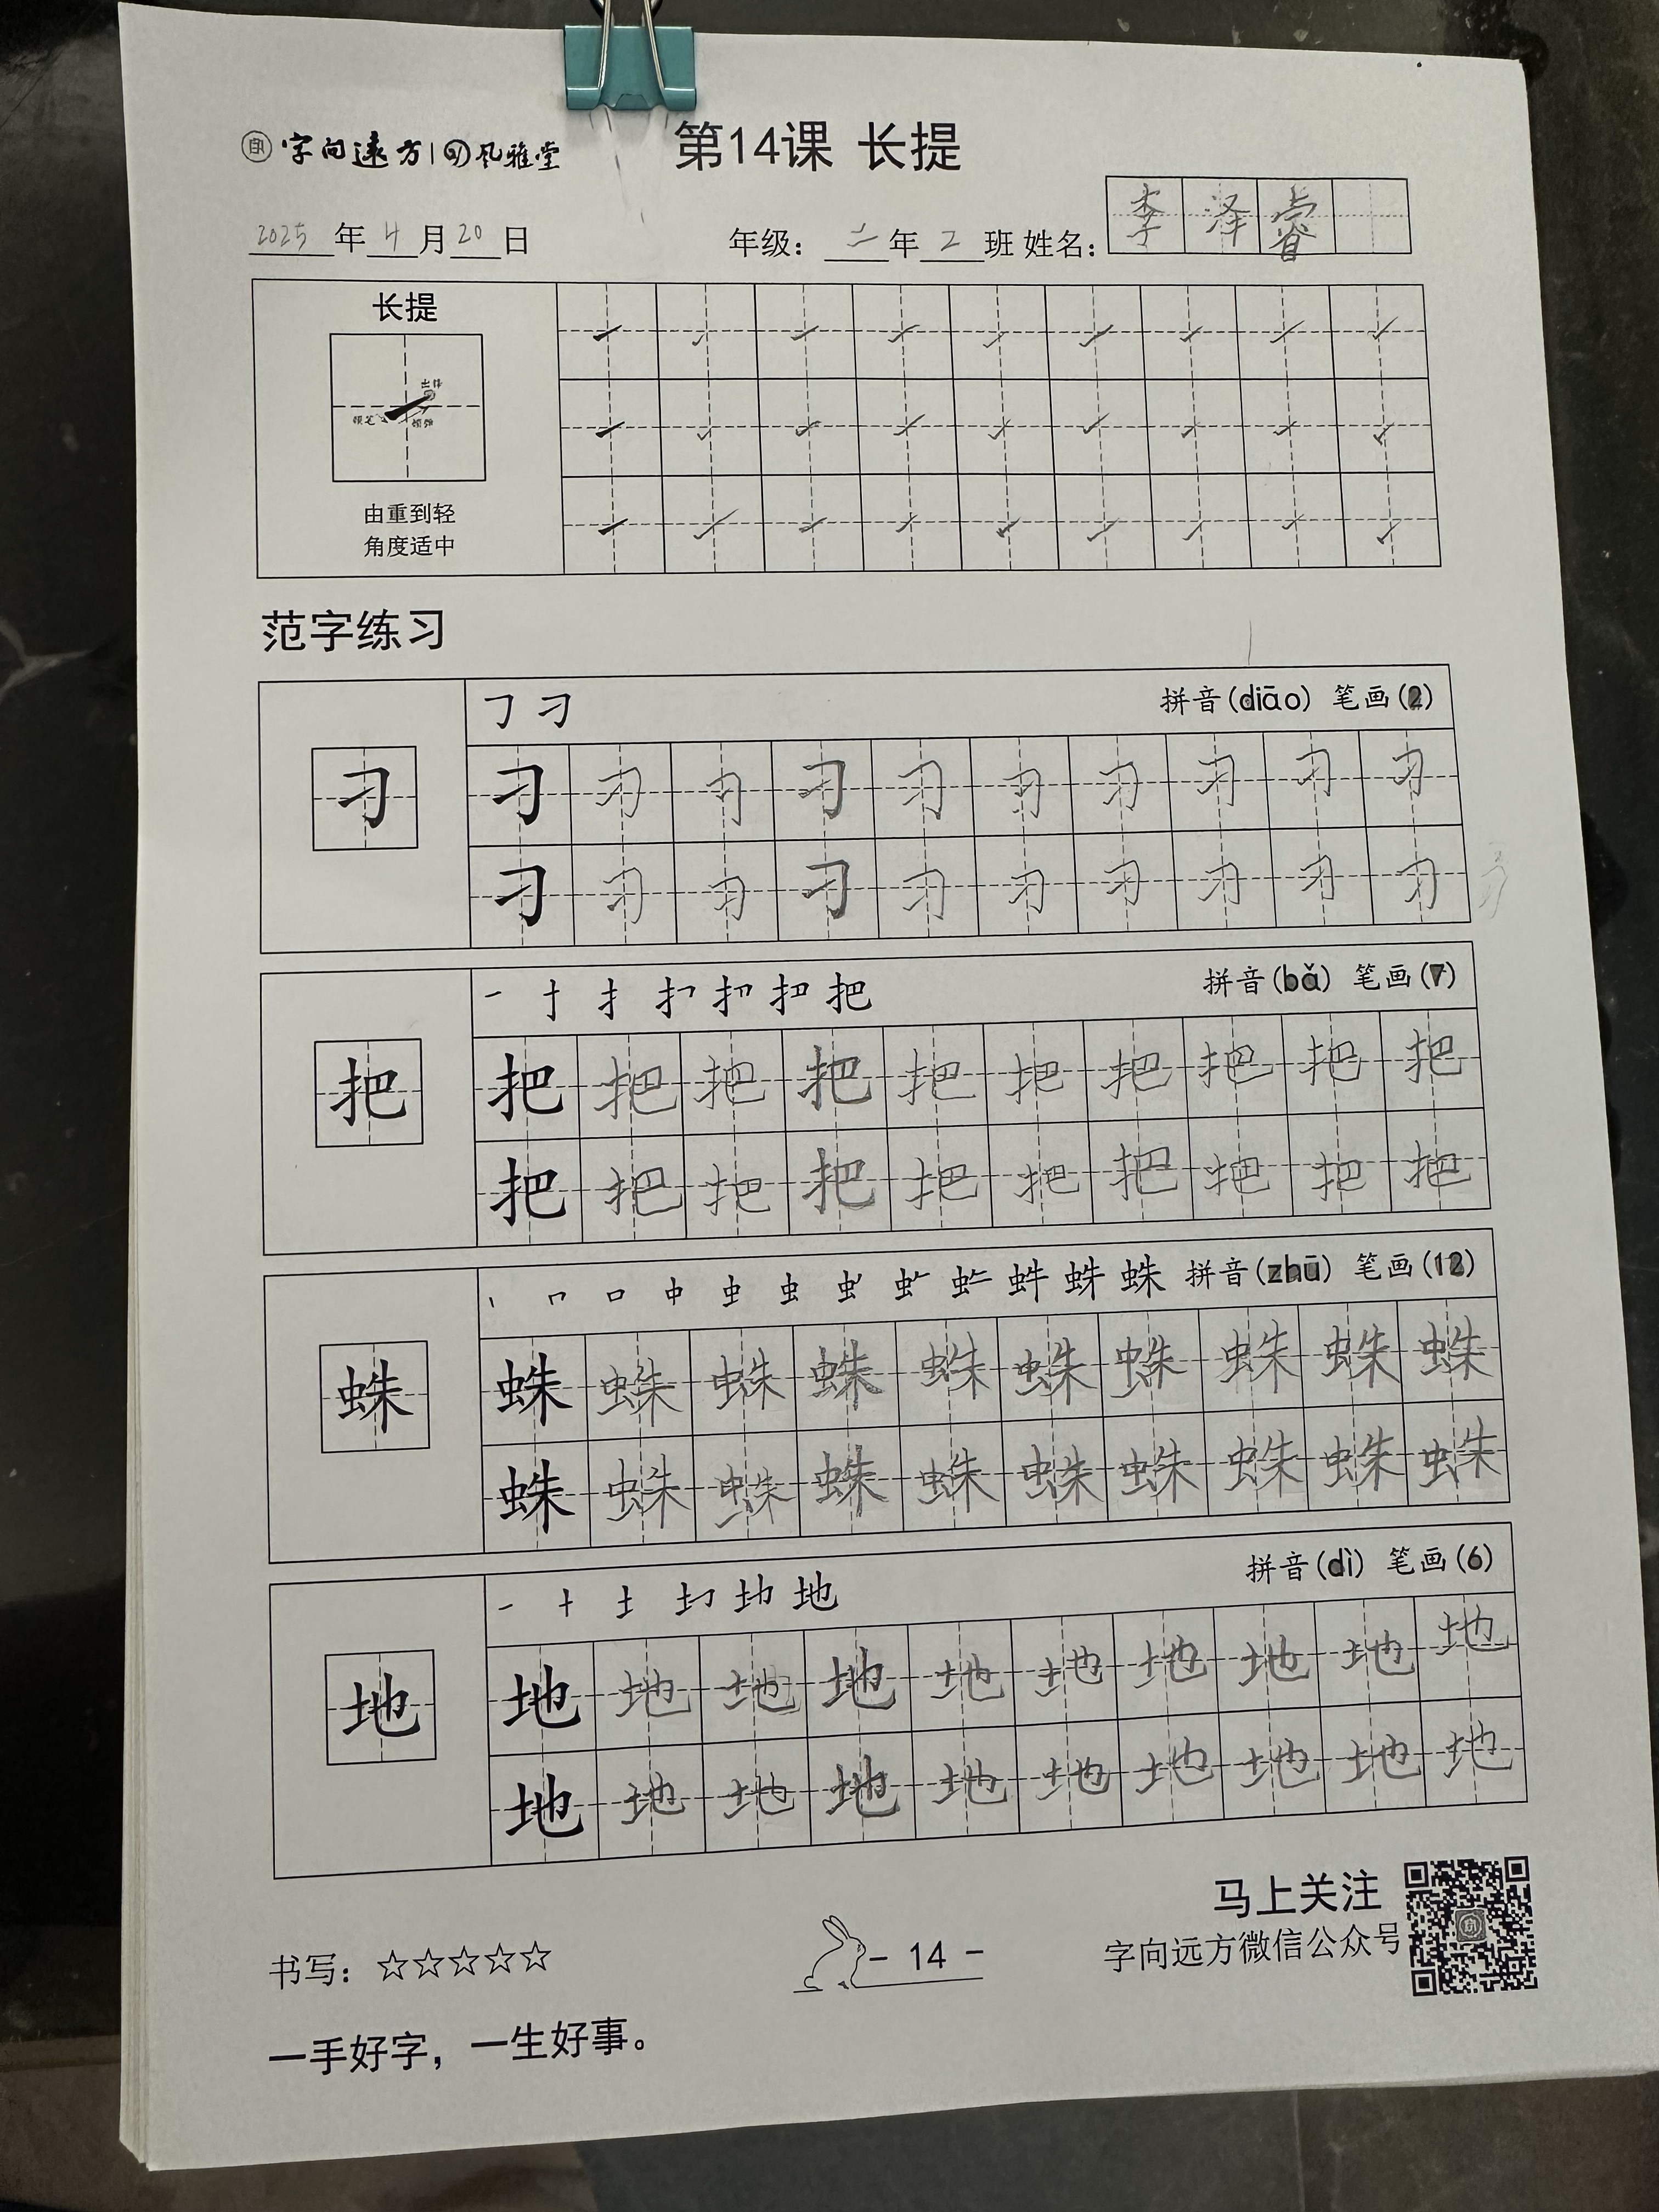 字向遠方 | 风雅堂
第14课 长提
2025年4月20日 年级：二年2班 姓名：李泽睿
长提
出锋
顿笔
由重到轻
角度适中
范字练习
㇆ 刁 拼音(diāo) 笔画(2)
刁 刁 刁 刁 刁 刁 刁 刁 刁 刁 刁
刁 刁 刁 刁 刁 刁 刁 刁 刁 刁
一 扌 把 拼音(bǎ) 笔画(7)
把 把 把 把 把 把 把 把 把 把 把
把 把 把 把 把 把 把 把 把 把
丶 口 中 虫 虫 蛛 拼音(zhū) 笔画(12)
蛛 蛛 蛛 蛛 蛛 蛛 蛛 蛛 蛛 蛛 蛛
蛛 蛛 蛛 蛛 蛛 蛛 蛛 蛛 蛛 蛛
一 十 土 地 拼音(dì) 笔画(6)
地 地 地 地 地 地 地 地 地 地 地
地 地 地 地 地 地 地 地 地 地
马上关注
字向远方微信公众号
书写：☆☆☆☆☆
- 14 -
一手好字，一生好事。